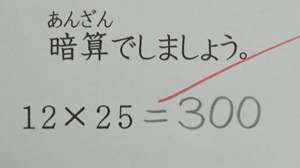 あんざん
暗算でしましょう。
12×25=300